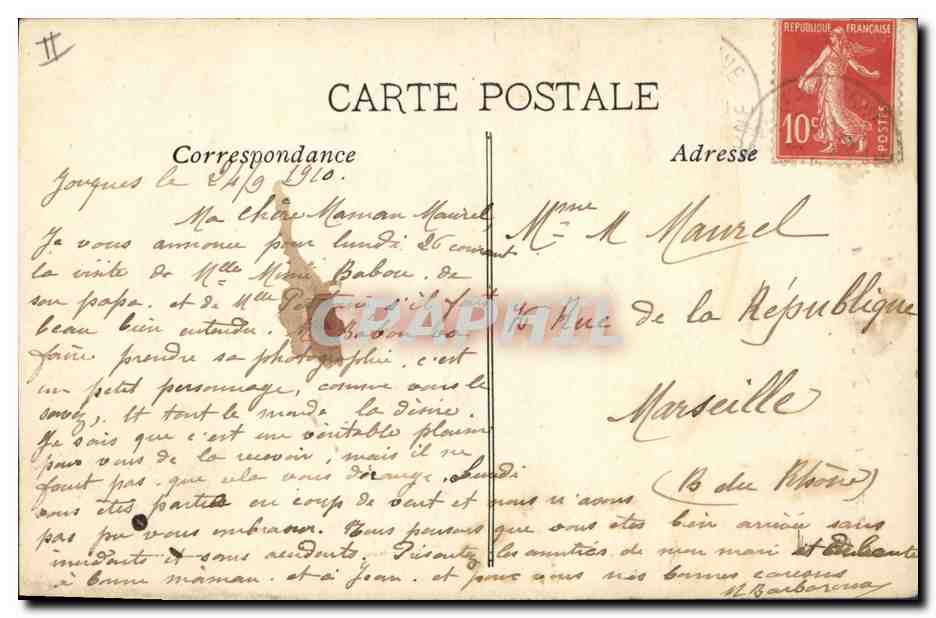 II
RÉPUBLIQUE FRANÇAISE
10 c
POSTES
CARTE POSTALE
Correspondance
Adresse
Jouques le 24/9 1910.
Ma Chère Maman Maurel,
Je vous annonce pour lundi 26 courant
la visite de Mlle Mimi Babou. de
son papa. et de Mlle s'il fait
beau bien entendu. Babou
faire prendre sa photographie. c'est
un petit personnage, comme vous le
savez, et tout le monde la désire.
Je sais que c'est un véritable plaisir
pour vous de la recevoir, mais il ne
faut pas que cela vous dérange. Lundi
vous êtes partie en coup de vent et nous n'avons
pas pu vous embrasser. Nous pensons que vous êtes bien arrivée sans
incidents et sans accidents. les amitiés de mon mari et
à bonne maman. et à Jean. et pour vous nos bonnes caresses
Mme M Maurel
Rue de la République
Marseille
(B du Rhône)
CPAPHIL